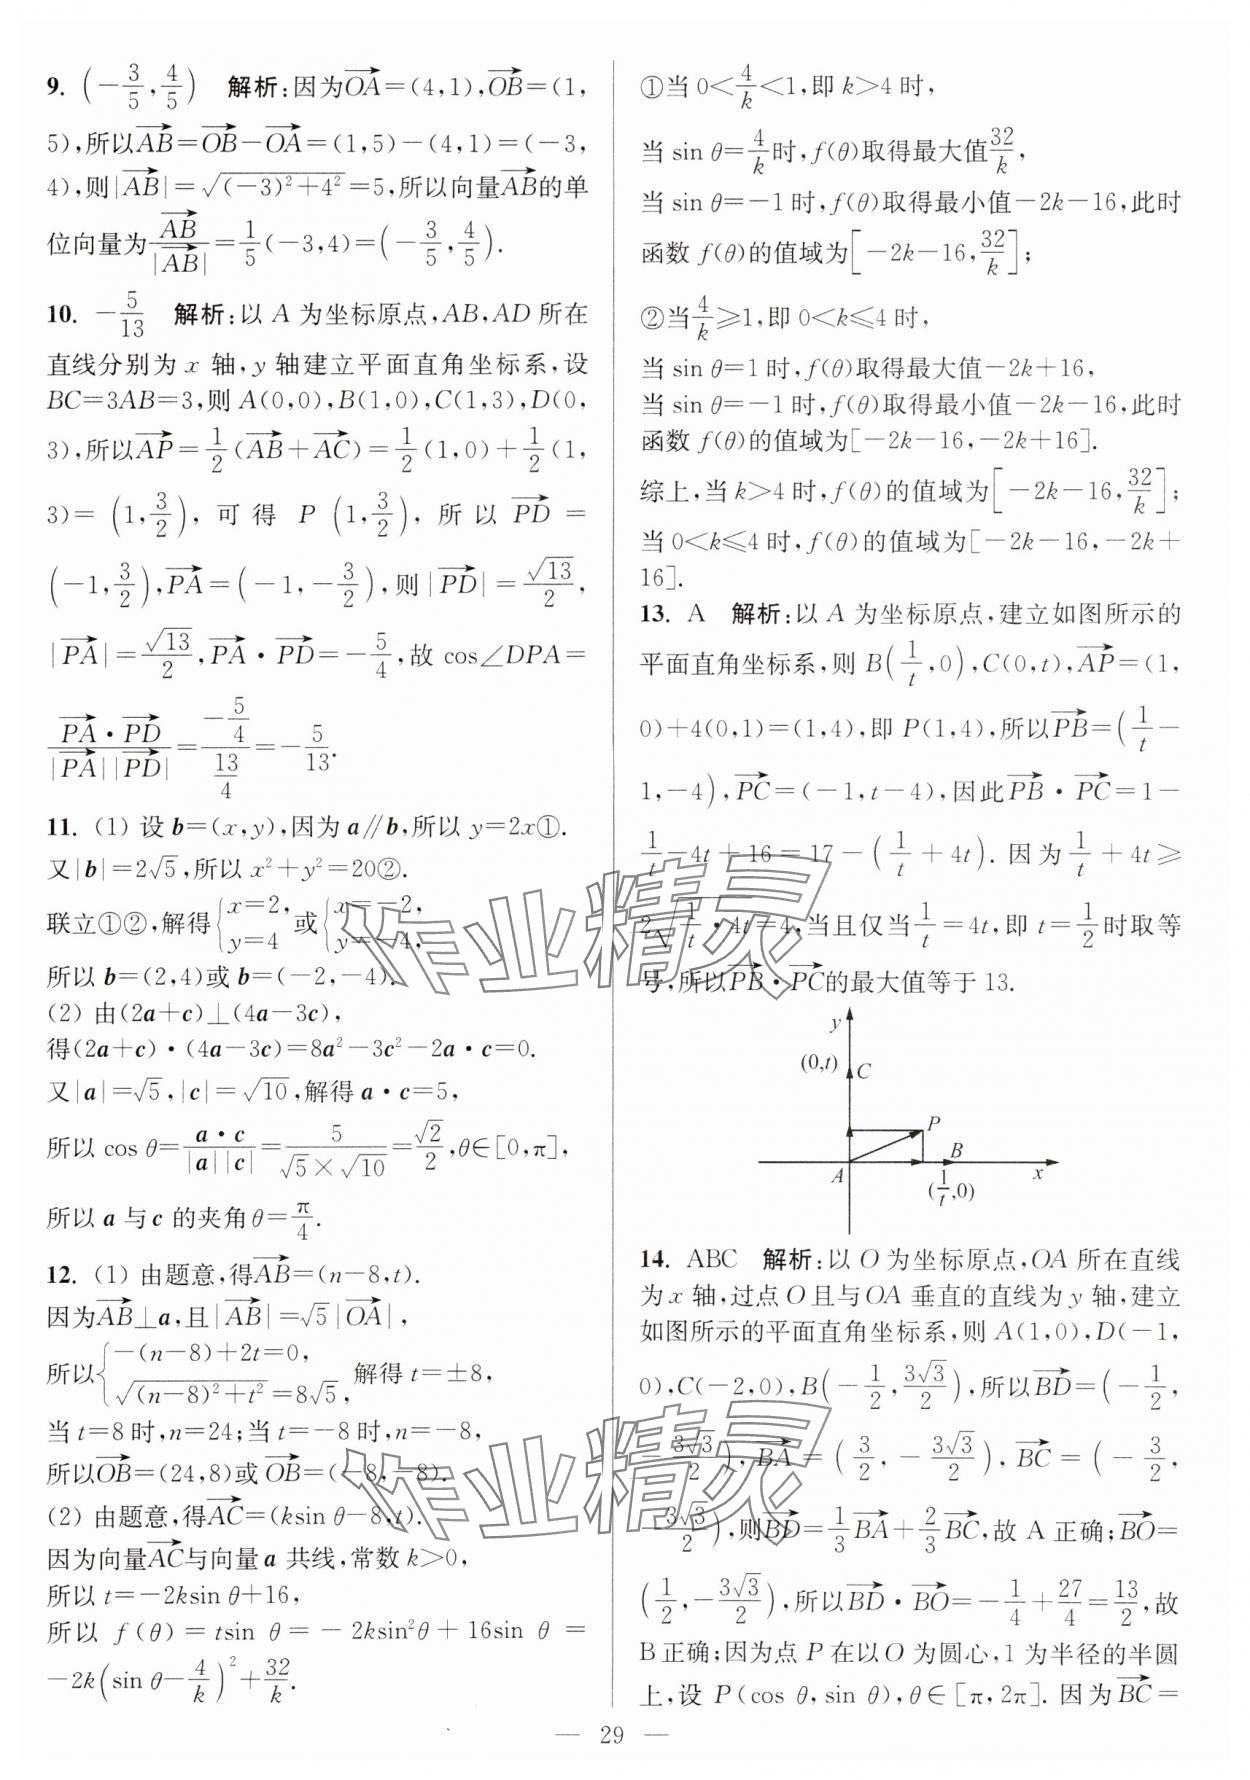 9. (−3/5, 4/5)  解析:因为→OA=(4,1),→OB=(1,
5),所以→AB=→OB−→OA=(1,5)−(4,1)=(−3,
4),则|→AB|=√((−3)²+4²)=5,所以向量→AB的单
位向量为→AB/|→AB|=1/5(−3,4)=(−3/5, 4/5).
10. −5/13  解析:以 A 为坐标原点,AB,AD 所在
直线分别为 x 轴,y 轴建立平面直角坐标系,设
BC=3AB=3,则 A(0,0),B(1,0),C(1,3),D(0,
3),所以→AP=1/2(→AB+→AC)=1/2(1,0)+1/2(1,
3)=(1, 3/2),可得 P(1, 3/2),所以→PD=
(−1, 3/2),→PA=(−1,−3/2),则|→PD|=√13/2,
|→PA|=√13/2,→PA·→PD=−5/4,故 cos∠DPA=
(→PA·→PD)/(|→PA||→PD|)=(−5/4)/(13/4)=−5/13.
11. (1) 设 b=(x,y),因为 a∥b,所以 y=2x①.
又|b|=2√5,所以 x²+y²=20②.
联立①②,解得{x=2, y=4 或{x=−2, y=−4,
所以 b=(2,4)或 b=(−2,−4).
(2) 由(2a+c)⊥(4a−3c),
得(2a+c)·(4a−3c)=8a²−3c²−2a·c=0.
又|a|=√5,|c|=√10,解得 a·c=5,
所以 cos θ=(a·c)/(|a||c|)=5/(√5×√10)=√2/2,θ∈[0,π],
所以 a 与 c 的夹角 θ=π/4.
12. (1) 由题意,得→AB=(n−8,t).
因为→AB⊥a,且|→AB|=√5|→OA|,
所以{−(n−8)+2t=0, √((n−8)²+t²)=8√5, 解得 t=±8,
当 t=8 时,n=24;当 t=−8 时,n=−8,
所以→OB=(24,8)或→OB=(−8,−8).
(2) 由题意,得→AC=(ksin θ−8,t).
因为向量→AC与向量 a 共线,常数 k>0,
所以 t=−2ksin θ+16,
所以 f(θ)=tsin θ=−2ksin²θ+16sin θ=
−2k(sin θ−4/k)²+32/k.
①当 0<4/k<1,即 k>4 时,
当 sin θ=4/k时,f(θ)取得最大值32/k,
当 sin θ=−1 时,f(θ)取得最小值−2k−16,此时
函数 f(θ)的值域为[−2k−16, 32/k];
②当4/k≥1,即 0<k≤4 时,
当 sin θ=1 时,f(θ)取得最大值−2k+16,
当 sin θ=−1 时,f(θ)取得最小值−2k−16,此时
函数 f(θ)的值域为[−2k−16,−2k+16].
综上,当 k>4 时,f(θ)的值域为[−2k−16, 32/k];
当 0<k≤4 时,f(θ)的值域为[−2k−16,−2k+
16].
13. A  解析:以 A 为坐标原点,建立如图所示的
平面直角坐标系,则 B(1/t,0),C(0,t),→AP=(1,
0)+4(0,1)=(1,4),即 P(1,4),所以→PB=(1/t−
1,−4),→PC=(−1,t−4),因此→PB·→PC=1−
1/t−4t+16=17−(1/t+4t). 因为1/t+4t≥
2√(1/t·4t)=4,当且仅当1/t=4t,即 t=1/2时取等
号,所以→PB·→PC的最大值等于 13.
y
(0,t) C
P
B
A
(1/t,0)
x
14. ABC  解析:以 O 为坐标原点,OA 所在直线
为 x 轴,过点 O 且与 OA 垂直的直线为 y 轴,建立
如图所示的平面直角坐标系,则 A(1,0),D(−1,
0),C(−2,0),B(−1/2, 3√3/2),所以→BD=(−1/2,
−3√3/2),→BA=(3/2,−3√3/2),→BC=(−3/2,
−3√3/2),则→BD=1/3→BA+2/3→BC,故 A 正确;→BO=
(1/2,−3√3/2),所以→BD·→BO=−1/4+27/4=13/2,故
B 正确;因为点 P 在以 O 为圆心,1 为半径的半圆
上,设 P(cos θ,sin θ),θ∈[π,2π]. 因为→BC=
— 29 —
作业精灵
作业精灵